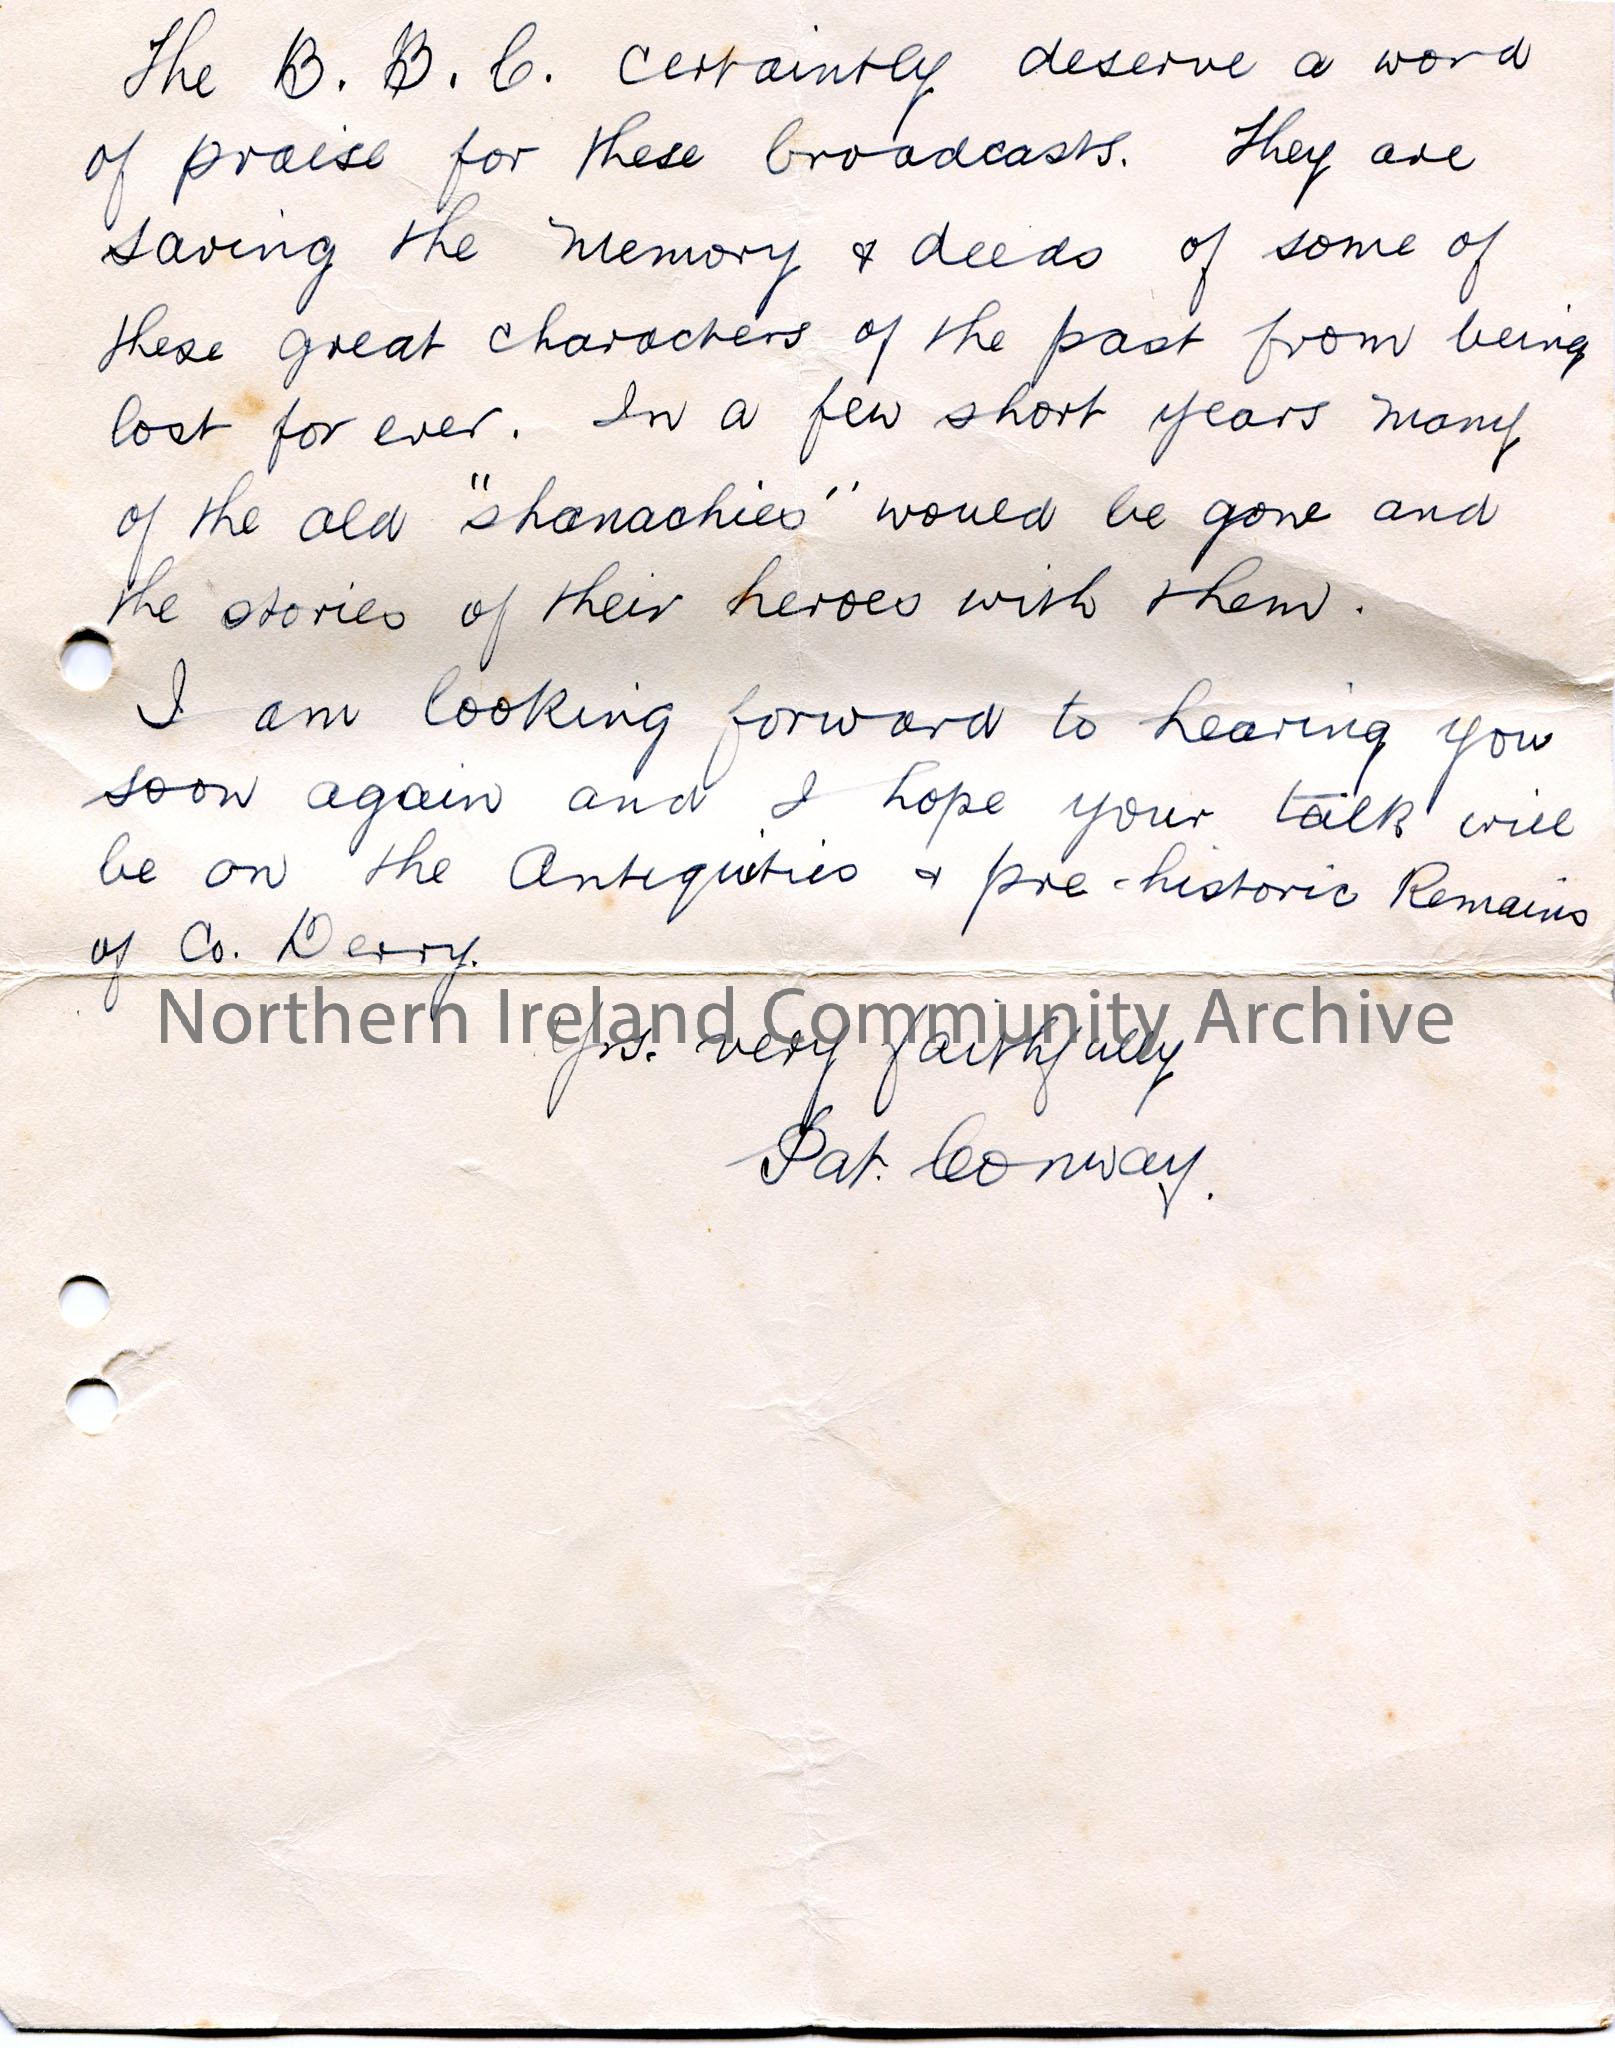 The B. B. C. certaintly deserve a word
of praise for these broadcasts. They are
saving the memory & deeds of some of
these great characters of the past from being
lost for ever. In a few short years many
of the old "shanachies" would be gone and
the stories of their heroes with them.
I am looking forward to hearing you
soon again and I hope your talk will
be on the Antiquities & pre-historic Remains
of Co. Derry.
Northern Ireland Community Archive
Yrs. very faithfully
Pat. Conway.